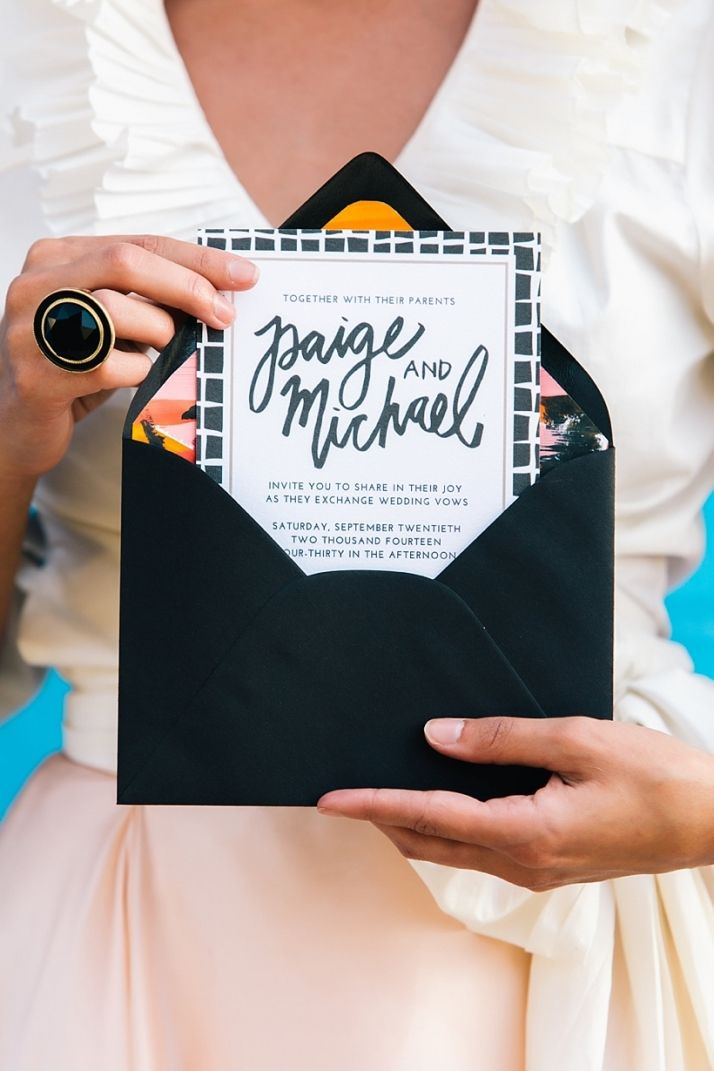 TOGETHER WITH THEIR PARENTS
paige AND
Michael
INVITE YOU TO SHARE IN THEIR JOY
AS THEY EXCHANGE WEDDING VOWS
SATURDAY, SEPTEMBER TWENTIETH
TWO THOUSAND FOURTEEN
OUR-THIRTY IN THE AFTERNOON